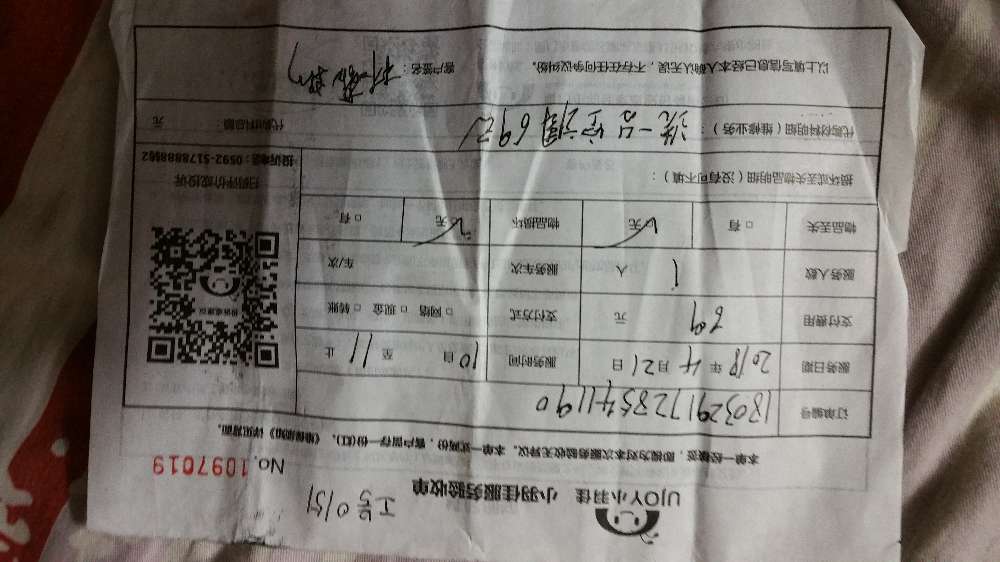 UJOY小羽佳 小羽佳服务验收单
No.1097019
工号0151
本单一经确签，即视为对本次服务验收无异议。本单一式两份，客户留存一份(红)。《维保须知》详见背面。
订单编号 180329172854411190
服务日期 2018年4月21日 服务时间 10自 至 11 止
支付费用 69 元 支付方式 □ 网络 □ 现金 □ 转账
服务人数 1 人 服务车次 车/次
物品丢失 □ 有 无 物品损坏 □ 有 无
损坏或丢失物品明细（没有可不填）：
代购材料明细（维修业务）： 洗一台空调69元 代购材料总额 元
以上填写信息已经本人确认无误，不存在任何争议纠纷。 客户签名：
扫码评价或投诉
投诉电话：0592-5178888662